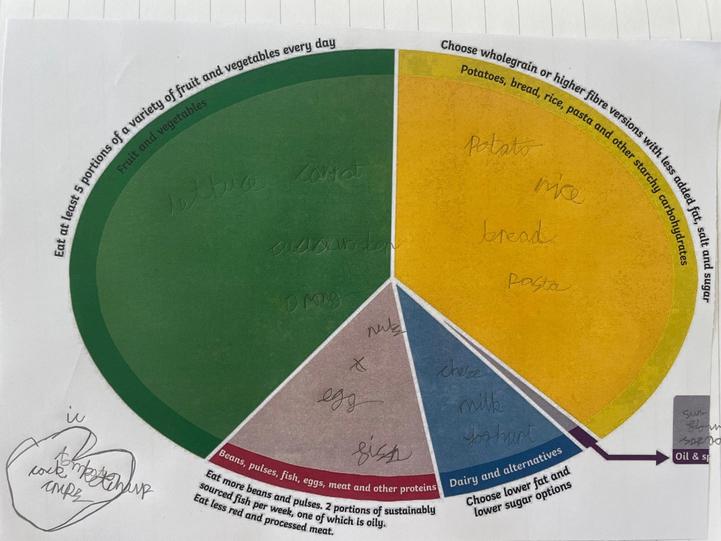 Eat at least 5 portions of a variety of fruit and vegetables every day
Fruit and vegetables
Choose wholegrain or higher fibre versions with less added fat, salt and sugar
Potatoes, bread, rice, pasta and other starchy carbohydrates
lettuce carrot
Potato
rice
bread
pasta
nuts
egg
fish
chese
milk
Beans, pulses, fish, eggs, meat and other proteins
Eat more beans and pulses. 2 portions of sustainably
sourced fish per week, one of which is oily.
Eat less red and processed meat.
Dairy and alternatives
Choose lower fat and
lower sugar options
Oil & sp